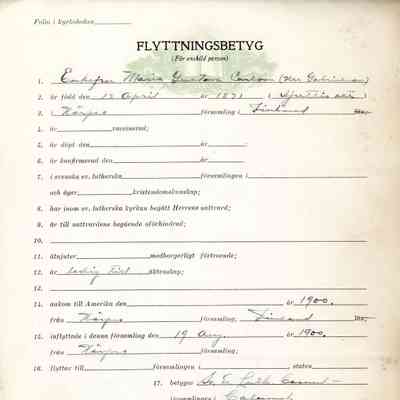 Folio i kyrkoboken
FLYTTNINGSBETYG
(För enskild person)
1. Enkefru Maria Gustava Carlson (
2. är född den 12 April år 1871 (
3. i Körpo församling i Finland
4. är vaccinerad;
5. är döpt den år ;
6. är konfirmerad den år
7. i svenska ev. lutherska församlingen i
och äger kristendomskunskap;
8. har inom ev. lutherska kyrkan begått Herrens nattvard;
9. är till nattvardens begående oförhindrad;
10.
11. åtnjuter medborgerligt förtroende;
12. är ledig till äktenskap;
12.
14. ankom till Amerika den år 1900.
från Körpo församling, Finland län;
15. inflyttade i denna församling den 19 Aug. år 1900.
från Körpo församling;
16. flyttar till församlingen i , staten
17. betygar
församlingen i